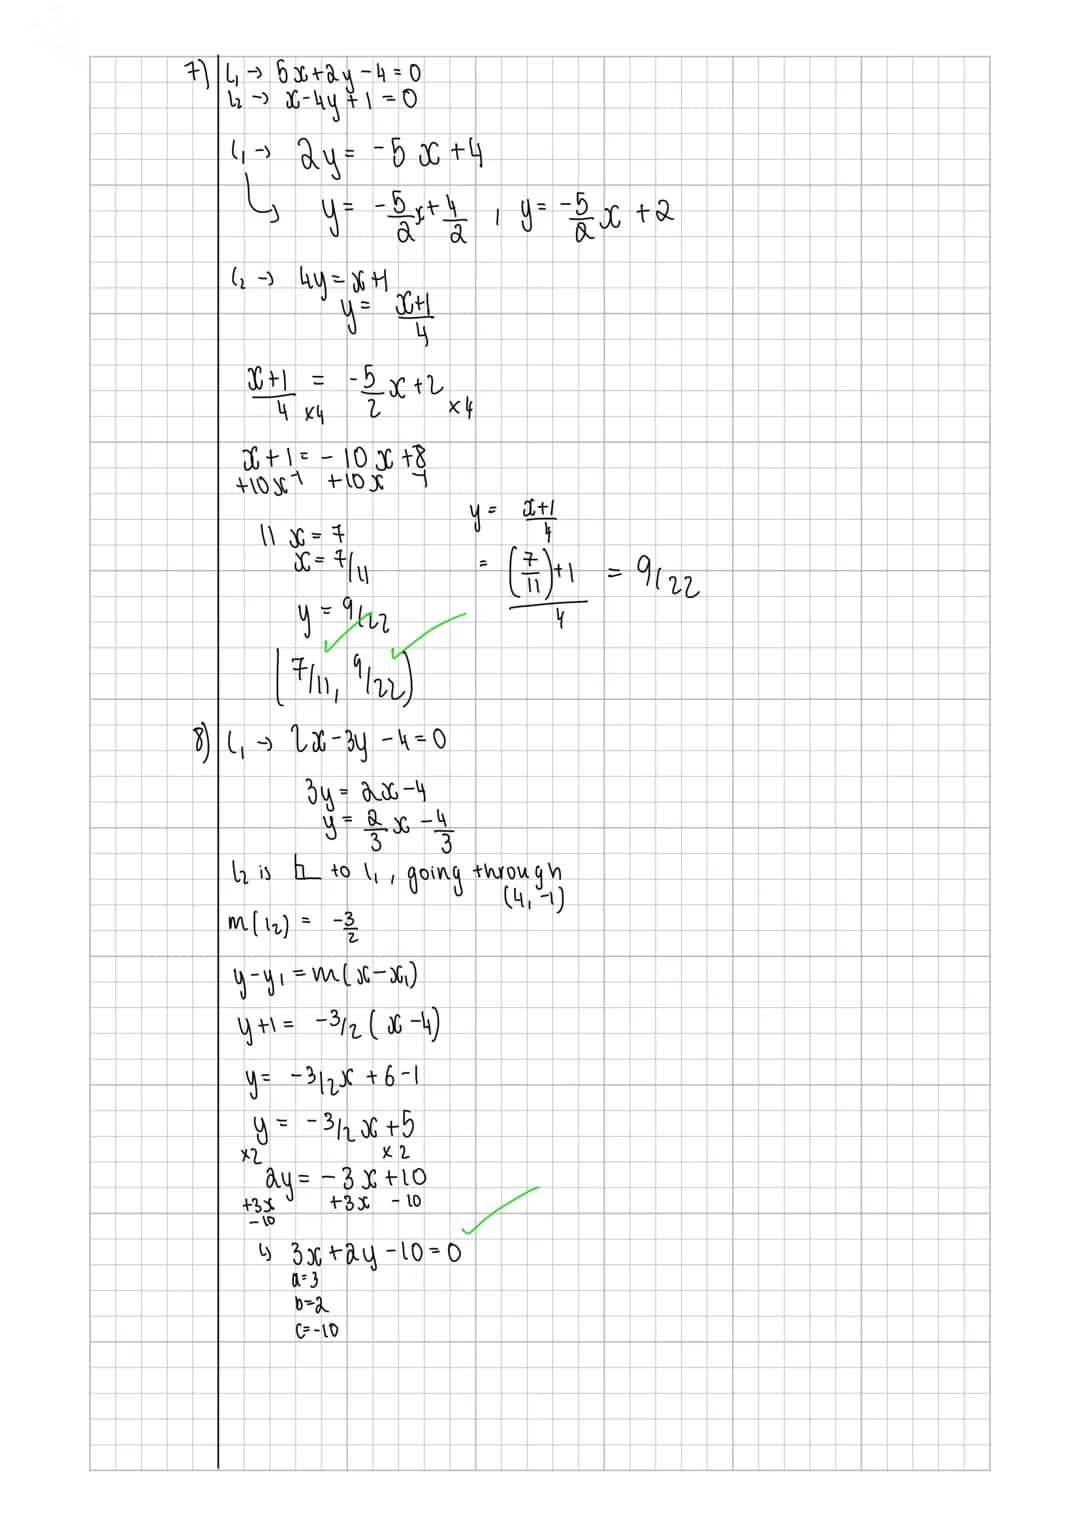 7) l₁ → 5x+2y-4=0
l₂ → x-4y+1=0
l₁ → 2y= -5x+4
↳ y= -5/2x+4/2 , y= -5/2x+2
l₂ → 4y=x+1
y= x+1/4
x+1/4 = -5/2x+2
×4 ×4
x+1= -10x+8
+10x -1 +10x -1
11x=7
x=7/11
y= x+1/4
= (7/11)+1/4 = 9/22
y=9/22
(7/11, 9/22)
8) l₁ → 2x-3y-4=0
3y= 2x-4
y= 2/3x-4/3
l₂ is ⊥ to l₁, going through
(4,-1)
m(l₂) = -3/2
y-y₁=m(x-x₁)
y+1= -3/2(x-4)
y= -3/2x+6-1
y= -3/2x+5
×2 ×2
2y= -3x+10
+3x +3x -10
-10
↳ 3x+2y-10=0
a=3
b=2
c=-10